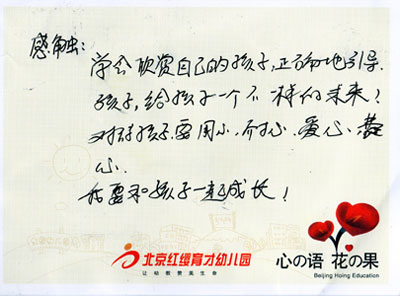 感触:
学会欣赏自己的孩子,正确地引导
孩子,给孩子一个不一样的未来!
对孩子要用心、耐心、爱心、
心.
我要和孩子一起成长!
北京红缨育才幼儿园
让幼教赞美生命
心の语 花の果
Beijing Hoing Education